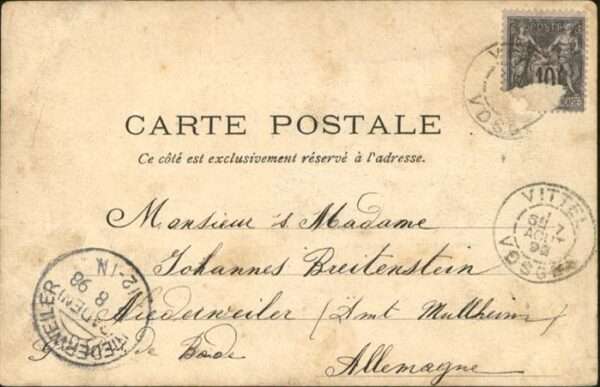 POSTES
10
VITTEL
VOSG
CARTE POSTALE
Ce côté est exclusivement réservé à l'adresse.
VITTEL
AOUT
98
VOSGES
Monsieur & Madame
Johannes Breitenstein
Niederweiler (Amt Mullheim)
de Bade
Allemagne
NIEDERWEILER
(BADEN)
8 98
12-1N